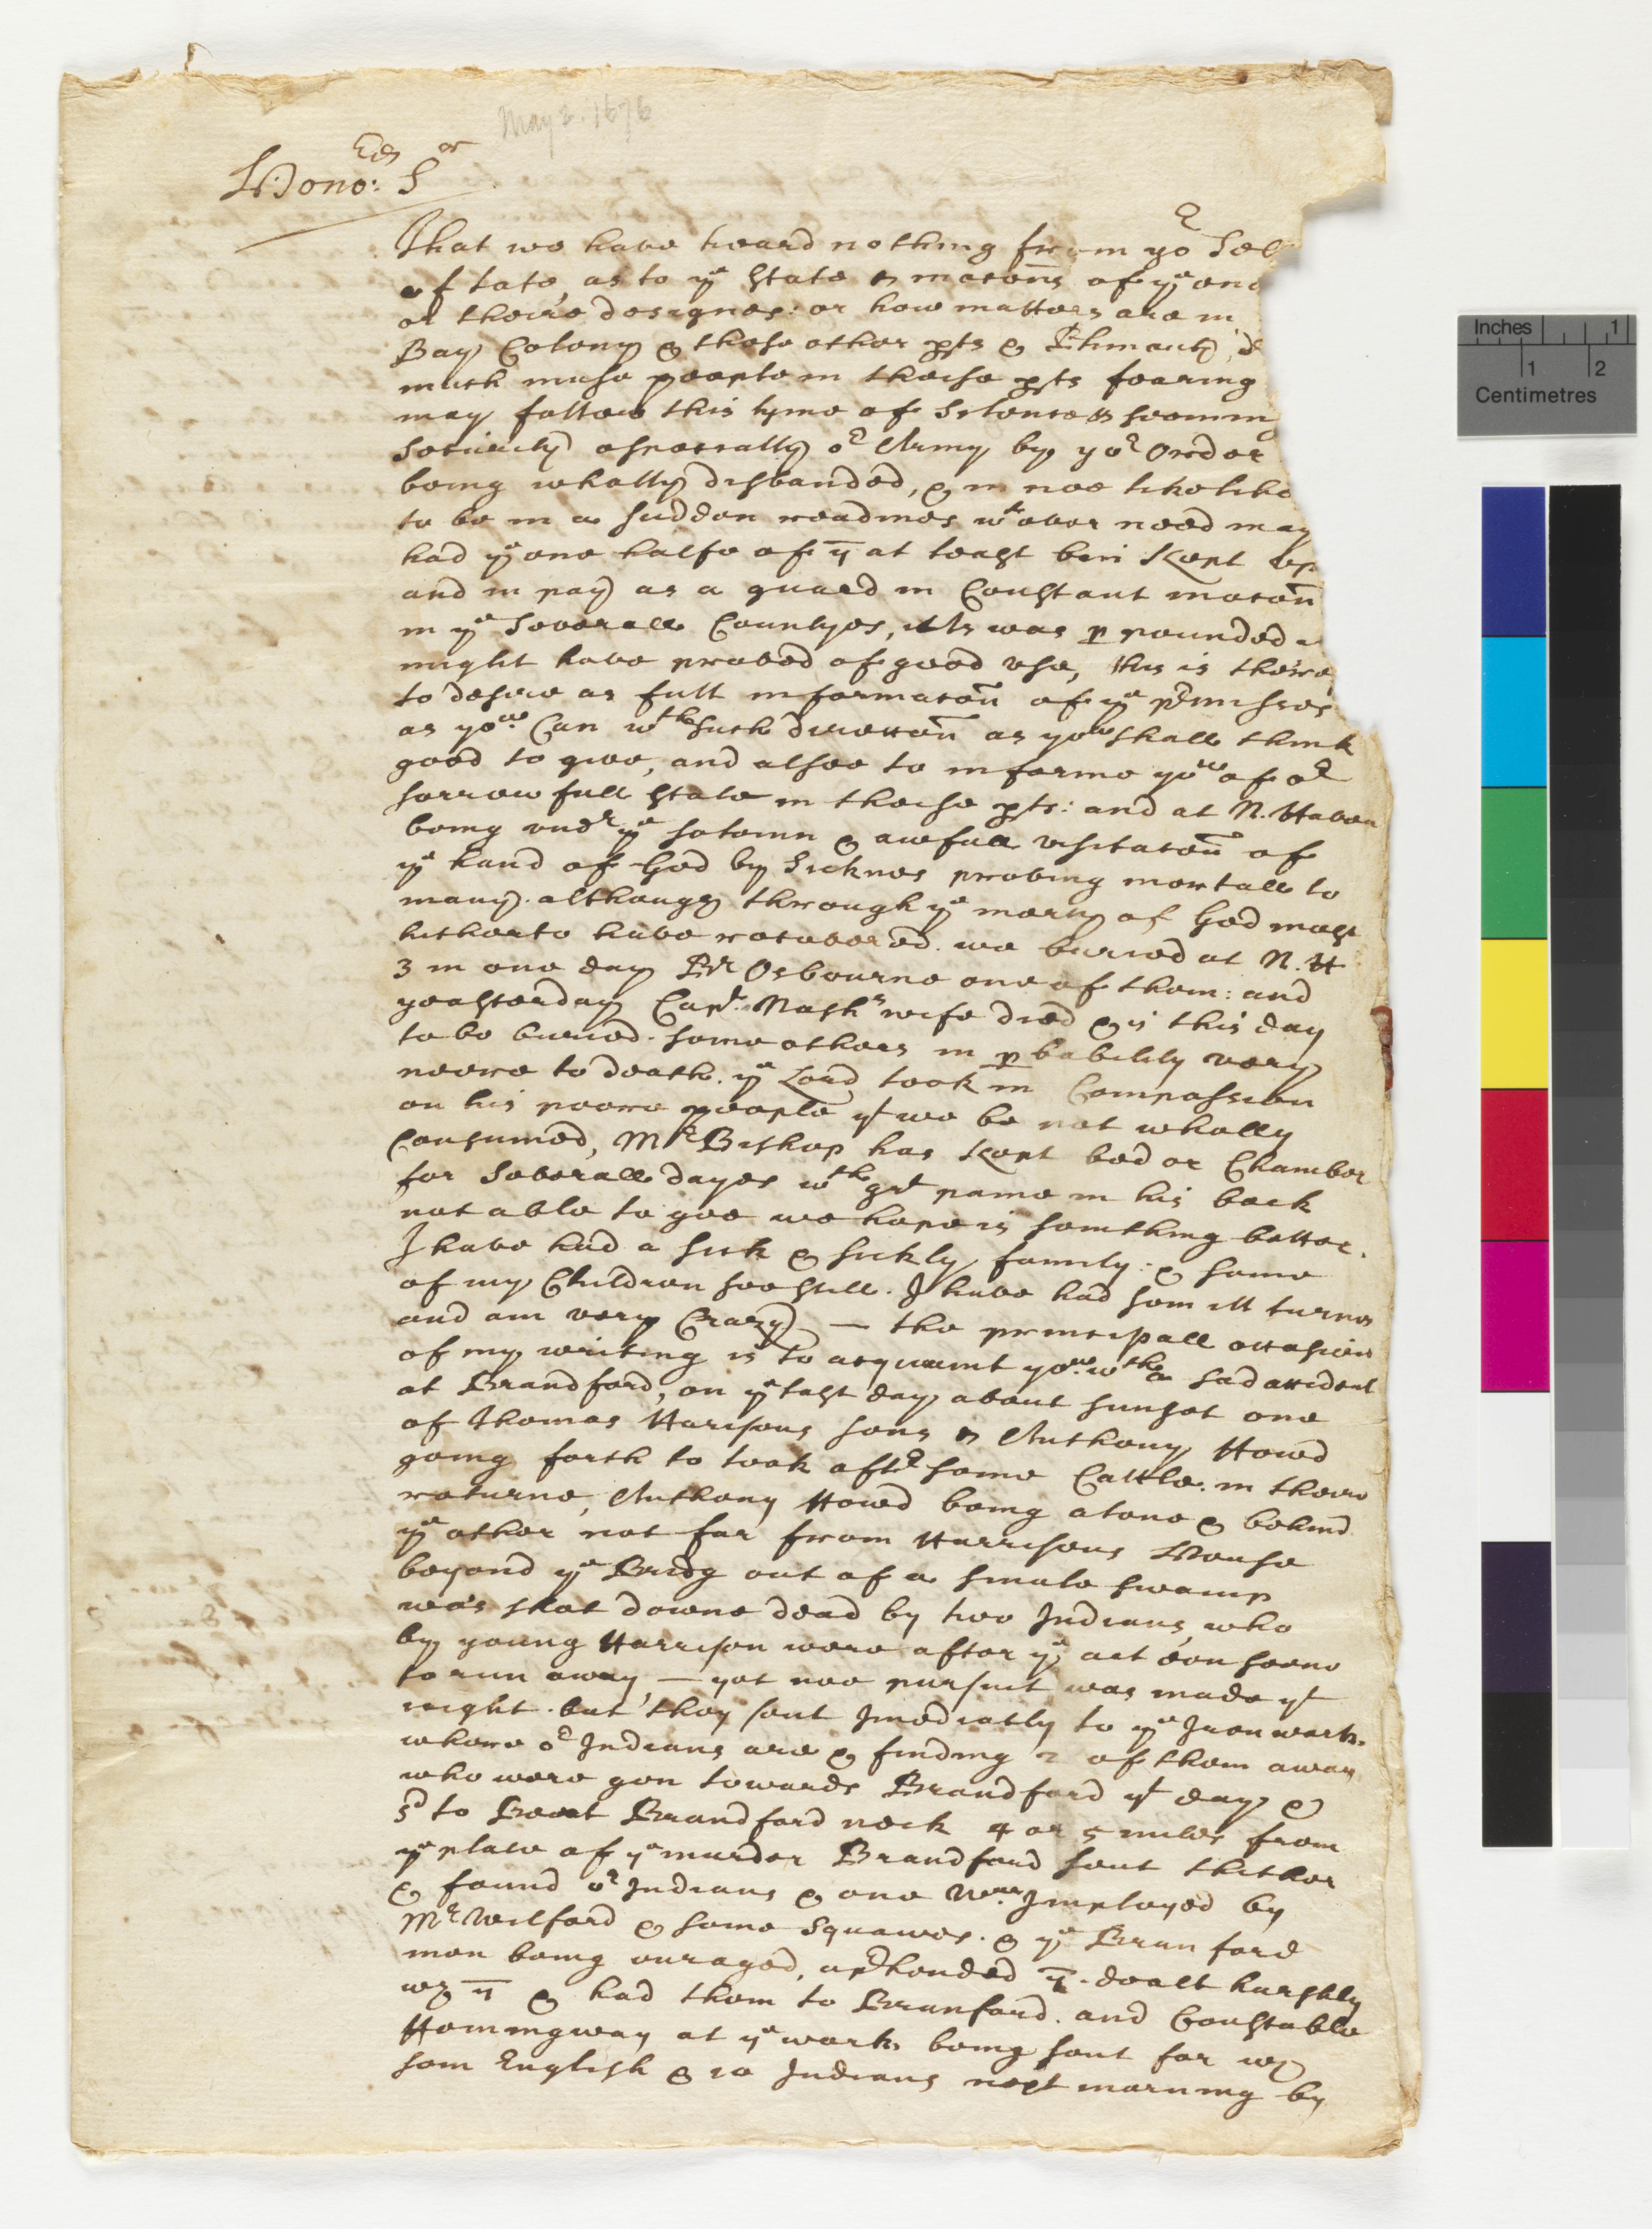 May 2. 1676
Hono:ed Sor
That we have heard nothing from yor Sel
of late, as to ye State & motõns of ye ene
or theire designes: or how matters are in
Bay Colony & those other pts & Plimouth, d
much muse people in theise pts fearing
may follow this tyme of Silence & seeming
Security especially or Army by yor Order
being wholly disbanded, & in noe likelihо
to be in a sudden readines wtever need may
had ye one halfe of ym at least bin kept up
and in pay as a guard in Constant motõn
in ye Severall Countyes, as was ppounded
might have proved of good vse, this is there
to desire as full informatõn of ye pmisses
as yow Can wth such directõn as yow shall think
good to give, and alsoe to informe yow of or
sorrowfull state in theise pts: and at N. Haven
being vndr ye solemn & awfull visitatõn of
ye hand of God by Sicknes proving mortall to
many. although through ye mercy of God most
hitherto have recovered. we buried at N. H
3 in one day Br Osbourne one of them: and
yeasterday Capt. Nashs wife died & is this day
to be buried. some others in pbability very
neere to death. ye Lord look in Compassion
on his poore people yt we be not wholly
Consumed, Mr Bishop has kept bed or Chamber
for Severall dayes wth grt paine in his back
not able to goe we hope is somthing better.
I have had a sick & sickly family: & some
of my Children soe still. I have had som ill turnes
and am very Crazy — the principall occasion
of my writing is to acquaint yow wth a sad accident
at Brandford, on ye last day about sunset one
of Thomas Harisons sons & Anthony Howd
going forth to look aftr some Cattle: in theire
returne, Anthony Howd being alone & behind
ye other not far from Harrisons House
beyond ye Bridg out of a smale swamp
was shot downe dead by two Indians, who
by young Harrison were after ye act don seene
to run away, — yet noe pursuit was made yt
night. but they sent Imediatly to ye Iron works.
where or Indians are & finding 2 of them away
who were gon towards Brandford yt day &
sd to bee at Brandford neck 4 or 5 miles from
ye place of ye murder Brandford sent thither
& found or Indians & one Imployed by
Mr Wilford & some squawes. & ye Branford
men being enraged, apphended ym. dealt harshly
wth ym & had them to Branford. and Constable
Hemingway at ye works being sent for wth
som English & 10 Indians next morning by